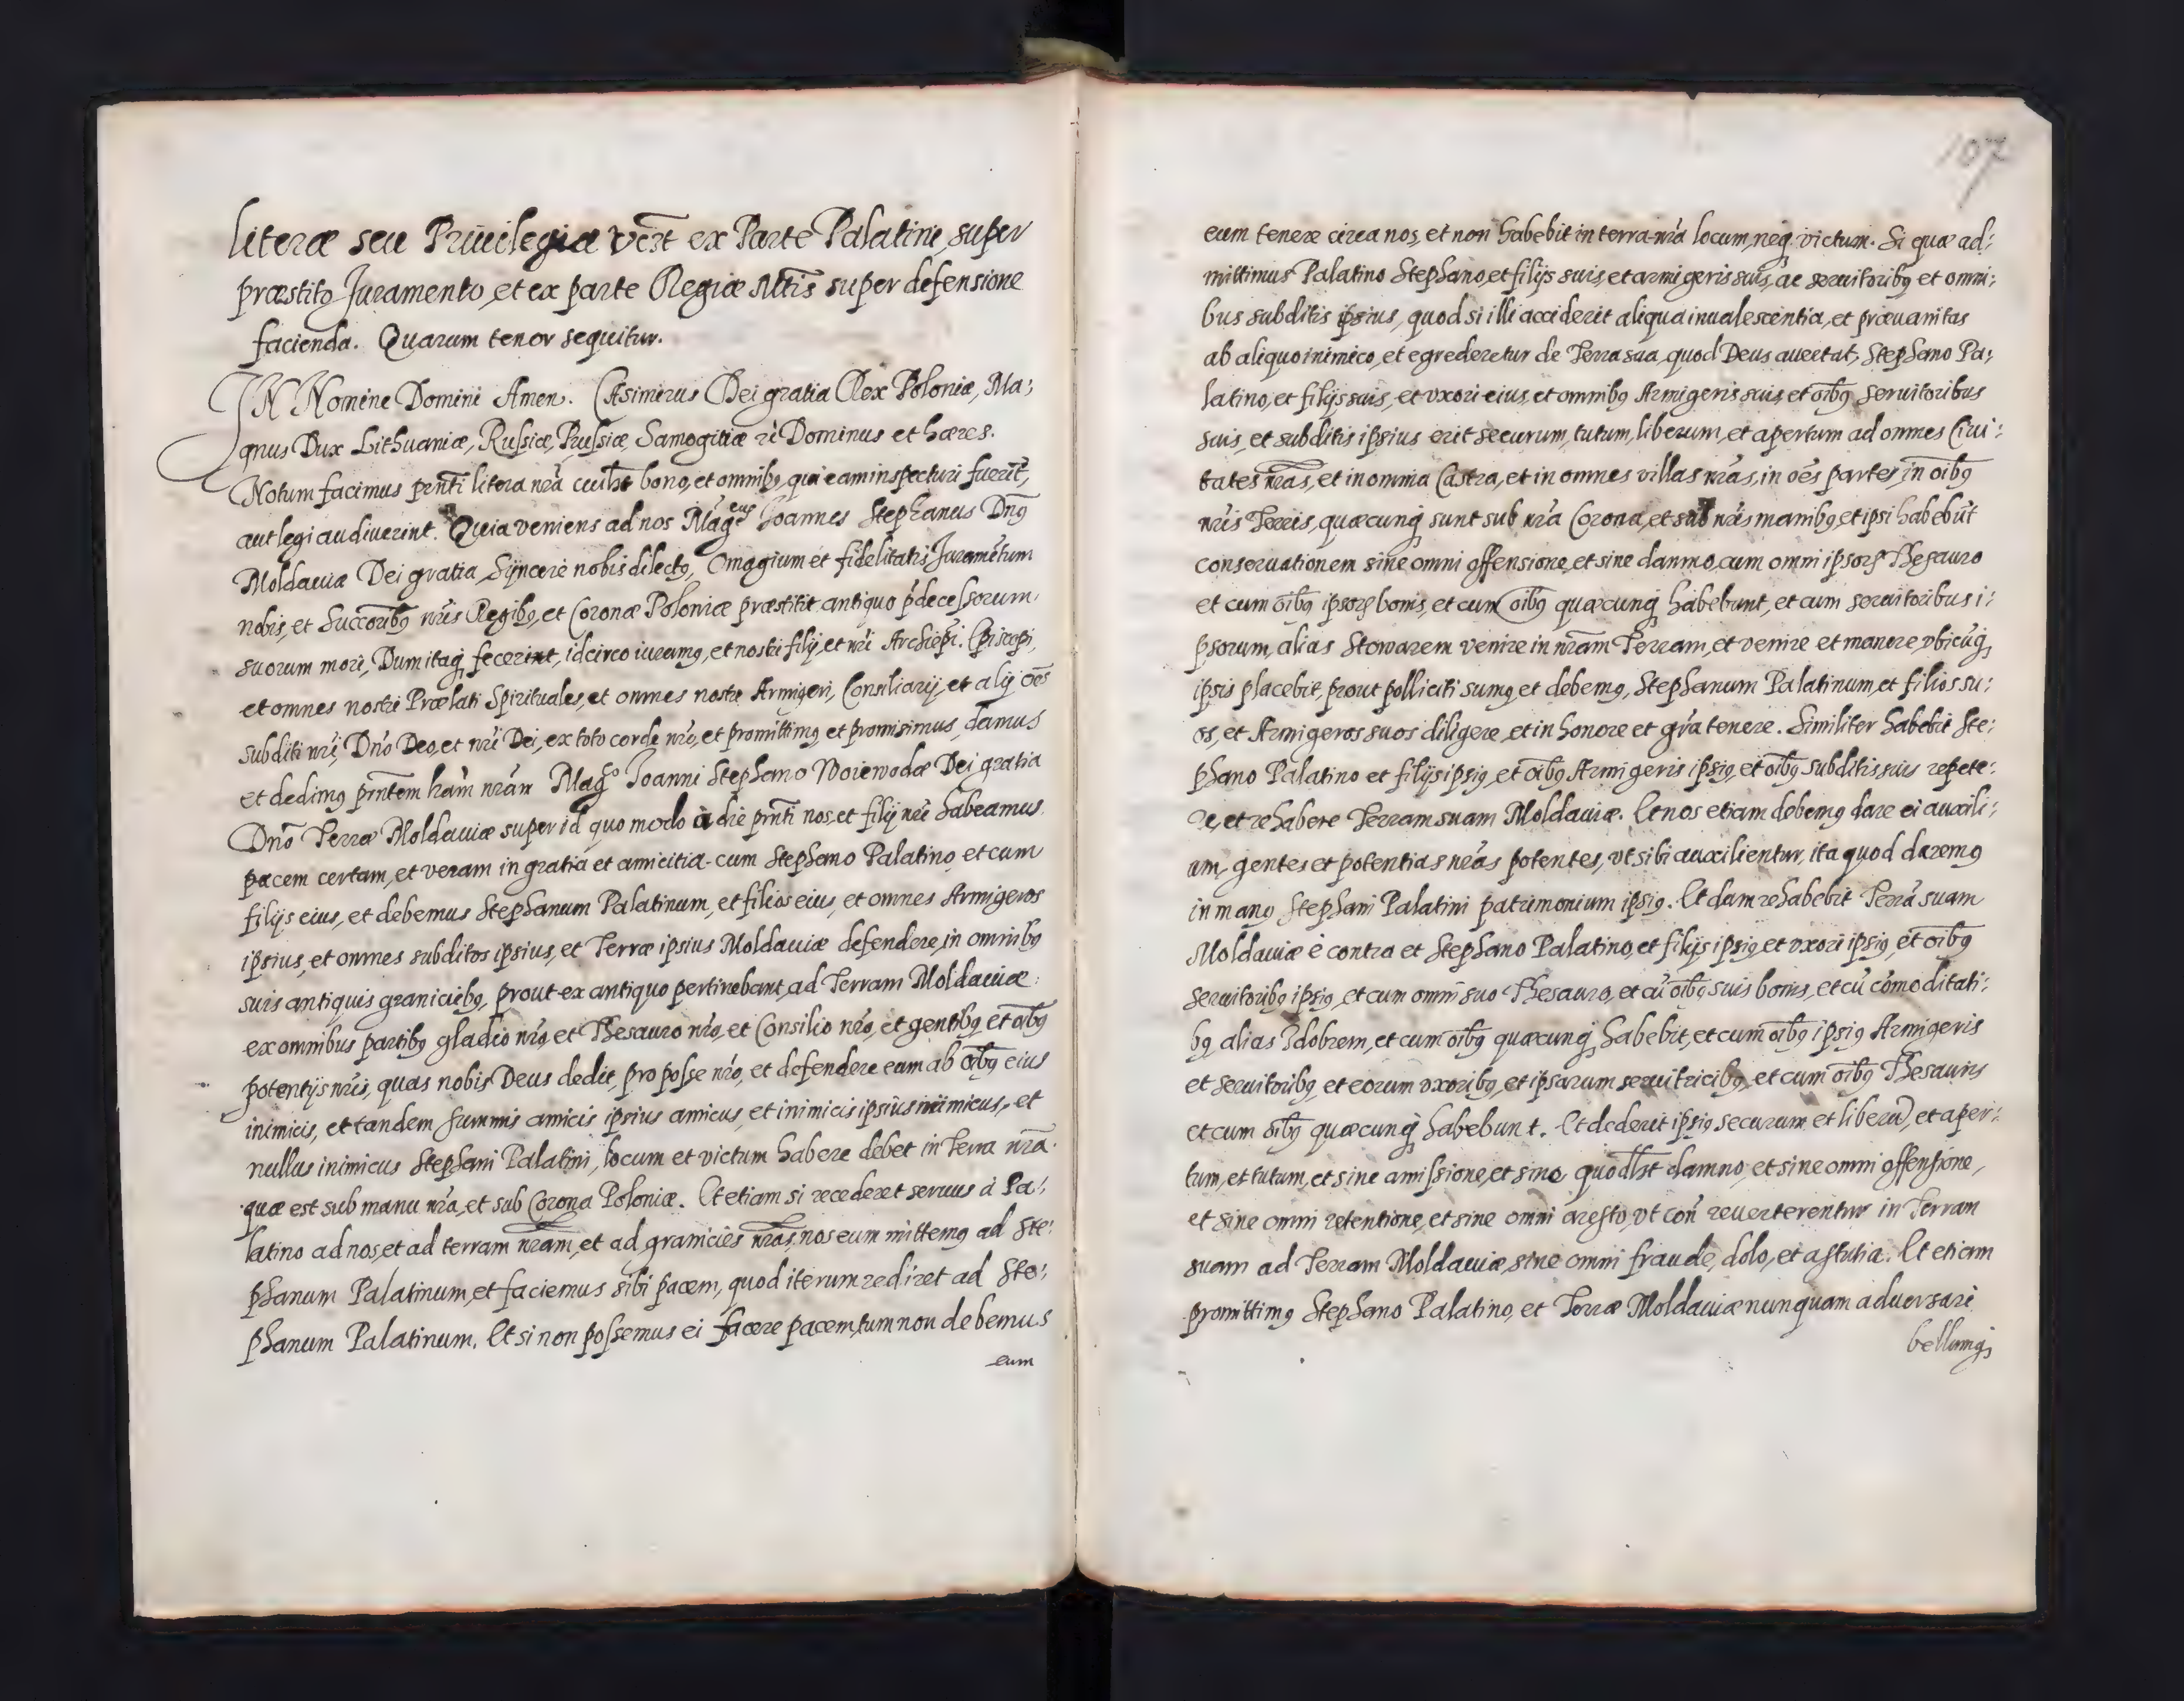 Literæ seu Priuilegia vẽrt ex Parte Palatini, super
præstito Juramento, et ex parte Regiæ Mt̃is super defensione
facienda. Quarum tenor sequitur.
IN Nomine Domini Amen. Casimirus Dei gratia Rex Poloniæ, Ma:
gnus Dux Lithuaniæ, Russiæ, Prussiæ, Samogitiæ Dominus et hæres.
Notum facimus pñti litera nr̃a cuilibet bono, et omnibꝫ, qui eam inspecturi fuerĩt,
aut legi audiverint. Quia veniens ad nos Mag.cus Joannes Stephanus Dñs
Moldauiæ Dei gratia Sÿncere nobis dilectꝫ, Omagium et fidelitatis Juramẽtum
nobis, et Succõribꝫ nr̃is Regibꝫ, et Coronæ Poloniæ præstitit antiquo p̃decessorum
suorum mori, Dum itaqꝫ fecerint, idcirco iuramꝫ, et nostri filij, et nr̃i Archiep̃i. Episcopi,
et omnes nostri Prælati Spirituales, et omnes nostri Armigeri, Consiliarij, et alij oẽs
subditi nr̃i, Dño Deo, et nr̃i Dei, ex toto corde nr̃o, et promittimꝫ et promisimus, damus
et dedimꝫ pñtem lr̃am nr̃am Mag.co Joanni Stephano Woiewodæ Dei gratia
Dño Terræ Moldauiæ super id quo modo à die pñti nos, et filij nr̃i habeamus
pacem certam, et veram in gratia et amicitia cum Stephano Palatino, et cum
filijs eius, et debemus Stephanum Palatinum, et filios eius, et omnes Armigeros
ipsius, et omnes subditos ipsius, et Terræ ipsius Moldauiæ defendere, in omnibꝫ
suis antiquis graniciebꝫ, prout ex antiquo pertinebant, ad Terram Moldauiæ
ex omnibus partibꝫ gladio nr̃o, et Thesauro nr̃o, et Consilio nr̃o, et gentibꝫ et õibꝫ
potentijs nr̃is, quas nobis Deus dedit, pro posse nr̃o, et defendere eum ab õibꝫ eius
inimicis, et tandem summis amicis ipsius amicus, et inimicis ipsius inimicus, et
nullus inimicus Stephani Palatini, locum et victum habere debet in Terra nr̃a
quæ est sub manu nr̃a, et sub Corona Poloniæ. Et etiam si recederet seruus à Pa:
latino ad nos, et ad terram nr̃am, et ad graniciẽs nr̃as, nos eum mittemꝫ ad Ste:
phanum Palatinum, et faciemus sibi pacem, quod iterum rediret ad Ste:
phanum Palatinum. Et si non possemus ei facere pacem, tum non debemus
eum
107
eum tenere circa nos, et non habebit in terra nr̃a locum, neqꝫ victum. Si quæ ad:
mittimus Palatino Stephano, et filijs suis, et armigeris suis, ac seruitoribꝫ et omni:
bus subditis ipsius, quod si illi acciderit aliqua inualescentia, et præuanitas
ab aliquo inimico, et egrederetur de Terra sua, quod Deus auertat, Stephano Pa:
latino, et filijs suis, et vxori eius, et omnibꝫ Armigeris suis, et õibꝫ seruitoribus
suis, et subditis ipsius erit securum, tutum, liberum, et apertum ad omnes Ciui:
tates nr̃as, et in omnia Castra, et in omnes villas nr̃as, in oẽs partes, in õibꝫ
nr̃is Terris, quæcunqꝫ sunt sub nr̃a Corona, et sub nr̃is manibꝫ, et ipsi habebũt
conseruationem sine omni offensione, et sine danmo, cum omni ipsorꝝ Thesauro
et cum õibꝫ ipsorꝝ bonis, et cum õibꝫ quæcunqꝫ habebunt, et cum seruitoribus i:
psorum, alias Stowarem venire in nr̃am Terram, et venire et manere vbicũqꝫ
ipsis placebit, prout polliciti sumꝫ et debemꝫ, Stephanum Palatinum, et filios su:
os, et Armigeros suos diligere, et in honore et gr̃a tenere. Similiter habebit Ste:
phano Palatino et filijs ipsiꝫ, et õibꝫ Armigeris ipsiꝫ, et õibꝫ subditis suis repete:
re, et rehabere Terram suam Moldauiæ. Et nos etiam debemꝫ dare ei auxili:
um, gentes et potentias nr̃as potentes, vt sibi auxilientur, ita quod daremꝫ
in manꝫ Stephani Palatini patrimonium ipsiꝫ. Et dum rehabebit Terrã suam
Moldauiæ è contra et Stephano Palatino, et filijs ipsiꝫ, et vxori ipsiꝫ, et õibꝫ
seruitoribꝫ ipsiꝫ, et cum omni suo Thesauro, et cũ õibꝫ suis bonis, et cũ cõmoditati:
bꝫ alias Zdobrem, et cum õibꝫ quæcunqꝫ habebit, et cum õibꝫ ipsiꝫ Armigeris
et seruitoribꝫ, et eorum vxoribꝫ, et ipsarum seruitricibꝫ, et cum õibꝫ Thesauris
et cum õibꝫ quæcunqꝫ habebunt. Et dederit ipsiꝫ securum et liberũ, et aper:
tum, et tutum, et sine amissione, et sine quodlibet damno, et sine omni offensione,
et sine omni retentione, et sine omni aresto, vt coñ reuerterentur in Terram
suam ad Terram Moldauiæ, sine omni fraude, dolo, et astutia. Et etiam
promittimꝫ Stephano Palatino, et Terræ Moldauiæ nunquam aduersari
bellumqꝫ